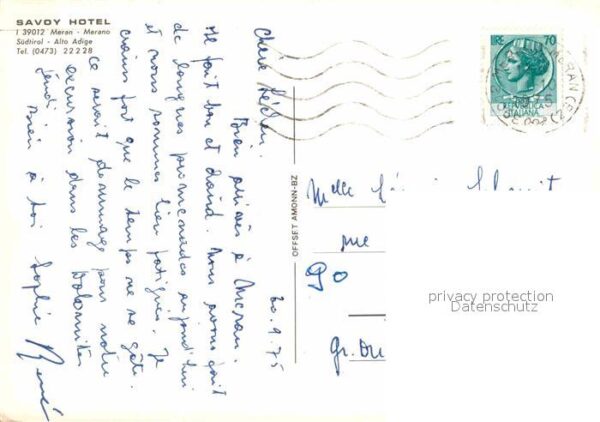 SAVOY HOTEL
I 39012 Meran - Merano
Südtirol - Alto Adige
Tel. (0473) 22228
20.9.75
Chère
Bien arrivés à Meran.
Il fait bon et chaud. Nous avons fait
de longues promenades aujourd'hui
et nous sommes bien fatigués. Je
crains fort que le temps ne se gâte.
Ce serait dommage pour notre
excursion dans les Dolomites
jeudi.
Bien à toi Sophie
René
OFFSET AMONN-BZ
LIRE 70
REPUBBLICA
ITALIANA
MERANO
Melle
rue
90
privacy protection
Datenschutz